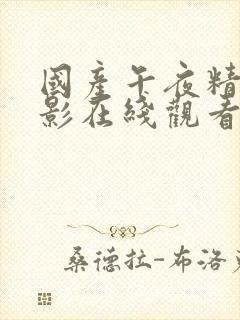 國產午夜精
影在綫觀看
桑德拉-布洛克